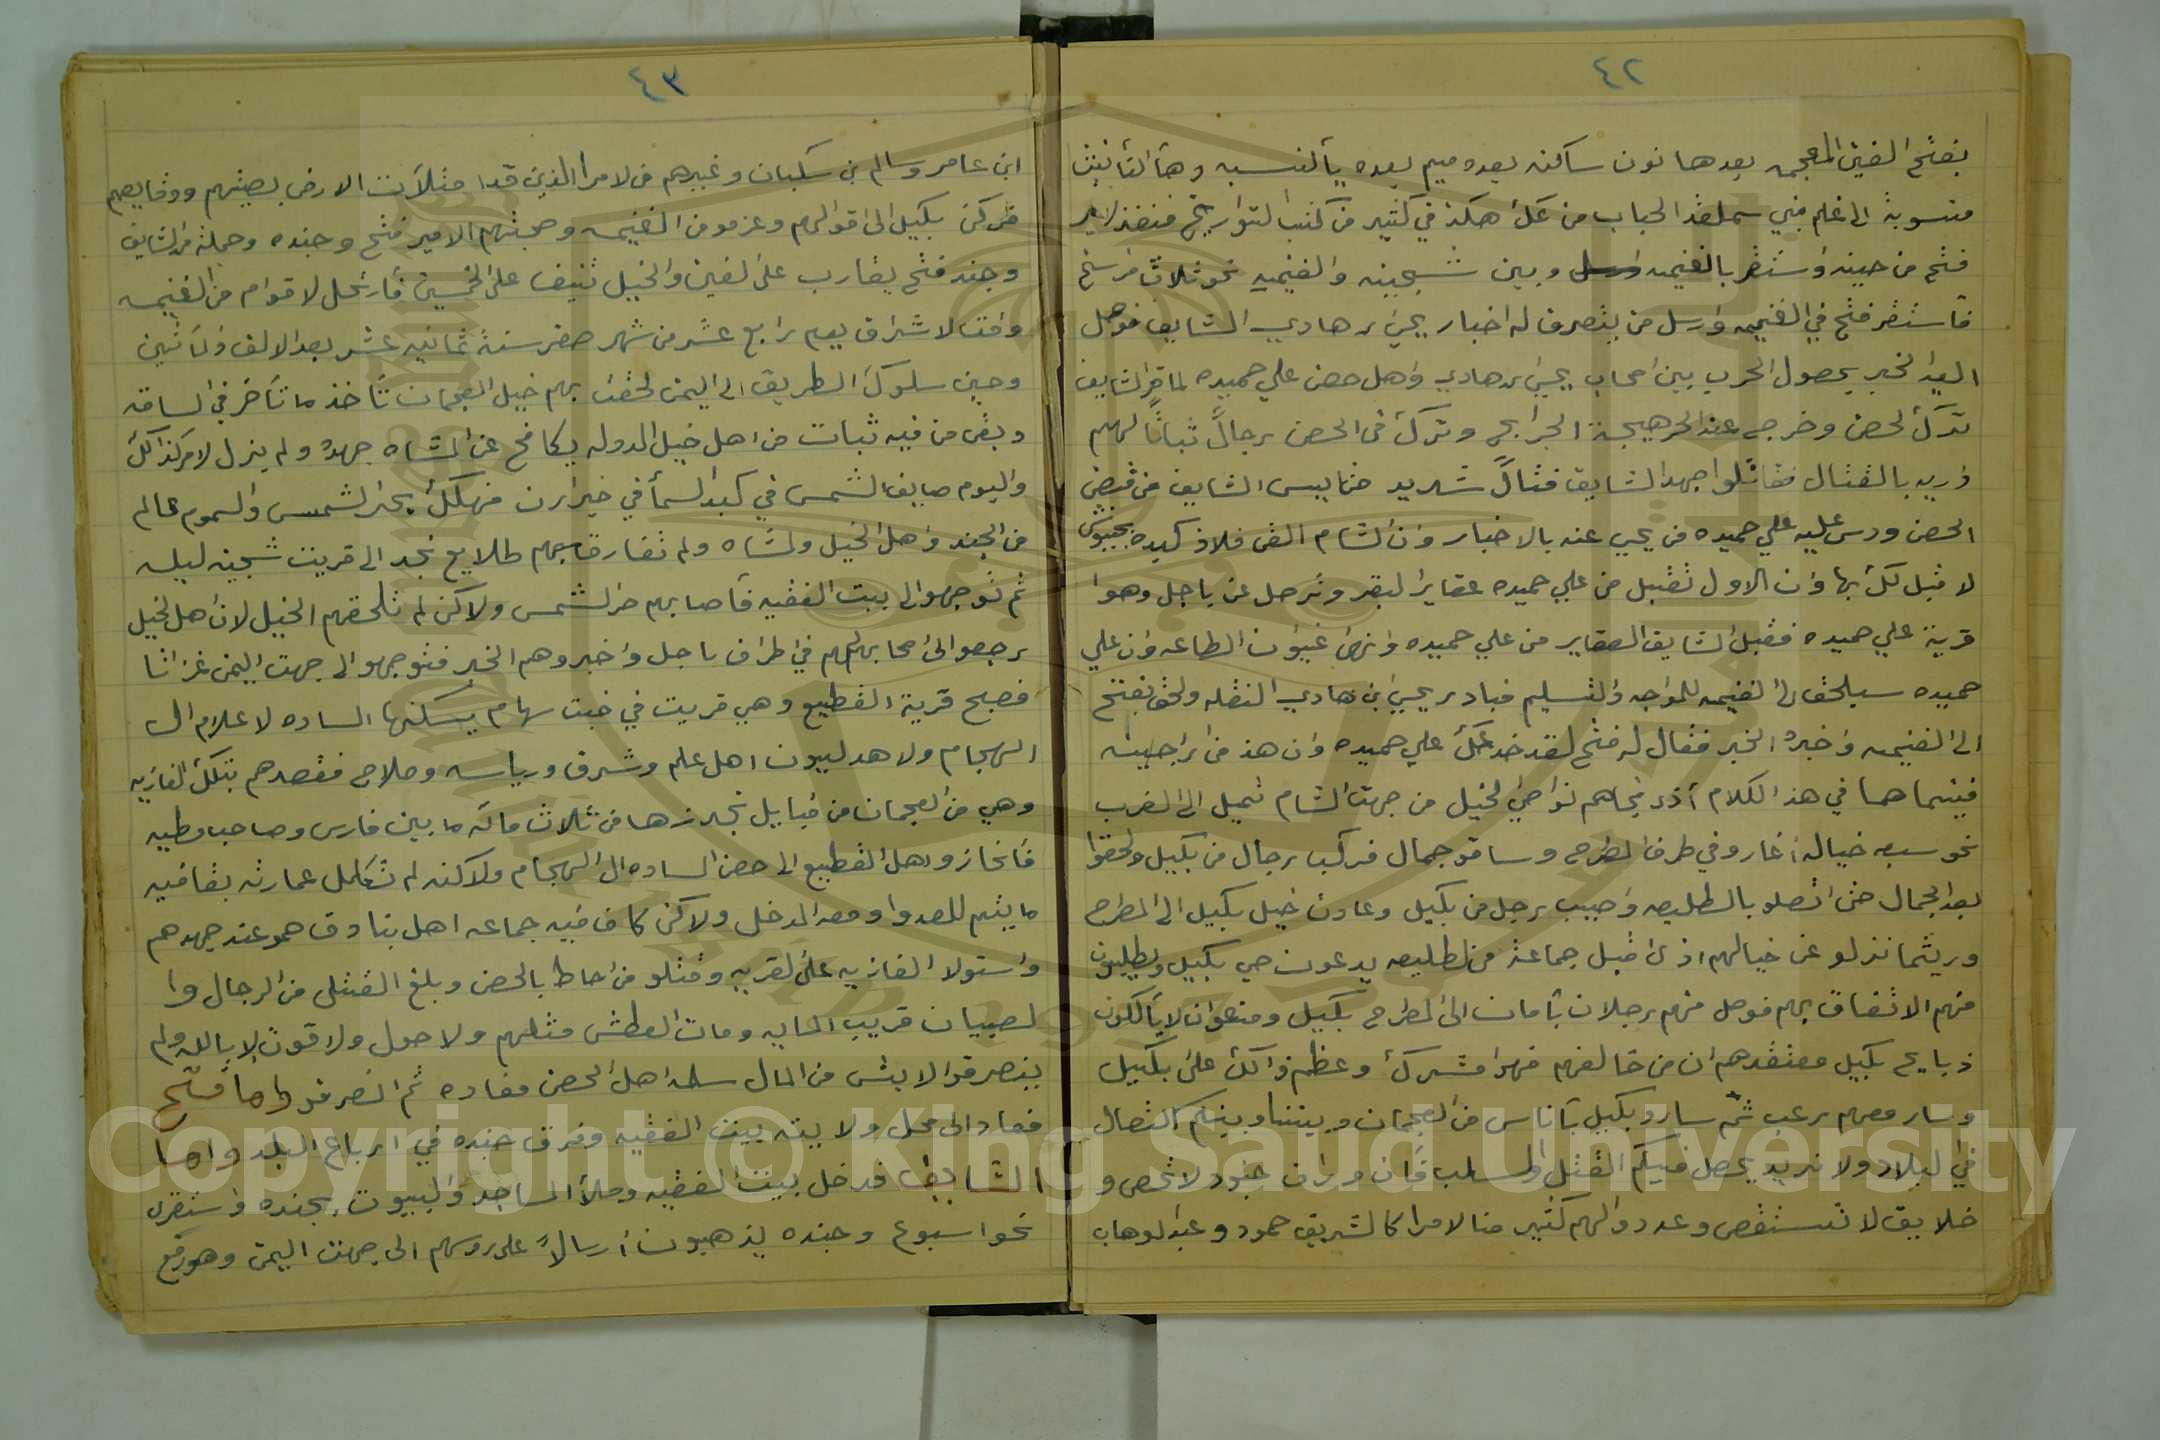 ٤٢
بفتح الغين المعجمه بعدها نون ساكنه بعده ميم بعده يأ لنسبه وهأ لتأنيث
منسوبة الى غلم بني سملقد الحباب من عك هكذ في كثير من كتب التواريخ فنفذ لامير
فتح من حينه واستقر بالغنيمه وبين شجينه والغنيميه نحو ثلاث فراسخ
فأستقر فتح في الغنيمه وارسل من يتصرف له اخبار يحيى بر هادي الشايف فوصل
اليه الخبر بحصول الحرب بين اصحاب يحيى بر هادي واهل حصن علي حميده لما قر الشايف
ترك لحصن وخرج عند الحر هيجة الجرابح وترك في الحصن رجالً ثباتًا لهم
دريه بالقتال فقاتلوا جهد الشايف قتالً شديد حتا يبس الشايف من قبض
الحصن ودس عليه علي حميده من يحيي عنه بالاخبار وان الشام القى فلاذ كبده بجيوش
لا قبل لك بها وان الاول تقبل من علي حميده عقاير البقر وترحل عن باجل وهوا
قرية علي حميده فقبل الشايف العقاير من علي حميده وانهى غيوان الطاعه وان علي
حميده سيلحق الى الغنيمه للمواجه والتسليم فبادر يحيى ابن هادي النقله ولحق بفتح
الى الغنيمه واخبره الخبر فقال له فتح لقد خدعك علي حميده وان هذ من اراجيفه
فبينما هما في هذ الكلام أذ فجاهم نواصي الخيل من جهت الشام تميل الى الغرب
نحو سبعه خياله أغارو في طرف المطرح وساقو جمال فركب رجال من بكيل ولحقوا
بعد الجمال حتى اتصلو بالطليعه واصيب رجل من بكيل وعادت خيل بكيل الى المطرح
وريثما نزلو عن خيالهم اذ اقبل جماعة من لطليعه يدعون حي بكيل ويطلبون
منهم الاتفاق بهم فوصل منهم رجلان بأمان الى المطرح بكيل ومنعو ان لا يأكلون
ذبايح بكيل معتقدهم ان من خالفهم فهوا مشرك وعظم ذالك على بكيل
وسار معهم رعب ثم سارو بكيل بأناس من العجمان وبيننا وبينكم اتصال
في البلاد ولا نريد يحصل فيكم القتل والسلب فأن وراف جنود لا تحص و
خلايق لا تستقص وعددوا لهم كثير منا لامرا كالشريف حمود وعبدلوهاب
٤٣
ابن عامر وسالم بن سكبان وغيرهم من لامرا الذين قدا متلآت الارض بصيتهم ووقايعهم
فركن بكيل الى اقوالهم وعزمو من الغنيمه وصحبتهم الامير فتح وجنده وجملة من الشايف
وجند فتح يقارب على الفين والخيل تنيف على الخمسين فأرتحل لاقوام من الغنيمه
وقت الاشراق يوم رابع عشر من شهر صفر سنة ثمانيه عشر بعد الالف والمأتين
وحين سلوك الطريق الى اليمن لحقت بهم خيل العجمان تأخذ ما تأخر في الساقه
وبقى من فيه ثبات من اهل خيل الدوله يكافح عن المشاه جهدً ولم يزل لامر كذالك
واليوم صايف الشمس في كبد السمأ في خيرارن فهلك بحر الشمس والسموم عالم
من الجند واهل الخيل ولمشاه ولم تفارقاسهم طلايع نجد الى قريت شجينه ليله
ثم توجهو الى بيت الفقيه فأصابهم حر الشمس ولاكن لم تلحقهم الخيل لان اهل الخيل
رجعو الى اصحابهم في اطراف باجل واخبروهم الخبر فتوجهو الى جهت اليمن غزاتا
فصبح قرية القطيع وهي قريت في خبت سهام يسكنها الساده لاعلام ال
البهجام ولاهدليون اهل علم وشرف ورياسه وصلاح فقصدهم بتلك الغازيه
وهي من العجمان من قبايل نجد زها من ثلاث مائه ما بين فارس وصاحب مطيه
فأنحازو اهل القطيع الى حصن الساده ال البهجام ولاكنه لم تتكامل عمارته بقافيه
ما يثم للعدوا ومعه المدخل ولاكن كان فيه جماعه اهل بنادق همو عند جهدهم
واستولا الغازيه على لقريه وقتلو من احاط بالحصن وبلغ القتلى من الرجال وا
لصبيان قريب المايه ومات العطش مثلهم ولا حول ولا قوت الا بالله ولم
ينصرفو الا بشى من المال سلمه اهل الحصن مفاده ثم انصرفو واما فتح
فعاد الى محل ولايته بيت الفقيه وفرق جنده في ارباع البلد واما
الشايف فدخل بيت الفقيه وملأ المساجد والبيوت بجنده واستقرى
نحو اسبوع وجنده يذهبون أرسالاً على روسهم الى جهت اليمن وهو رفع
Copyright © King Saud University